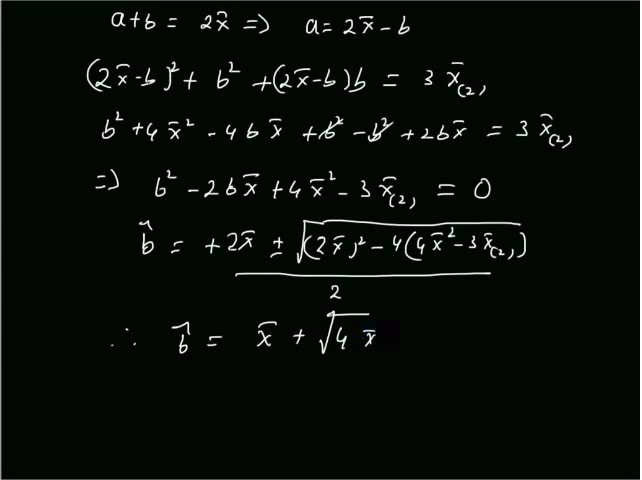 a+b = 2x̄ => a = 2x̄ - b
(2x̄-b)² + b² + (2x̄-b)b = 3 x̄₍₂₎
b² + 4x̄² - 4bx̄ + b² - b² + 2bx̄ = 3 x̄₍₂₎
=> b² - 2bx̄ + 4x̄² - 3x̄₍₂₎ = 0
b̂ = +2x̄ ± √((2x̄)² - 4(4x̄² - 3x̄₍₂₎))
2
∴ b̂ = x̄ + √4 x̄